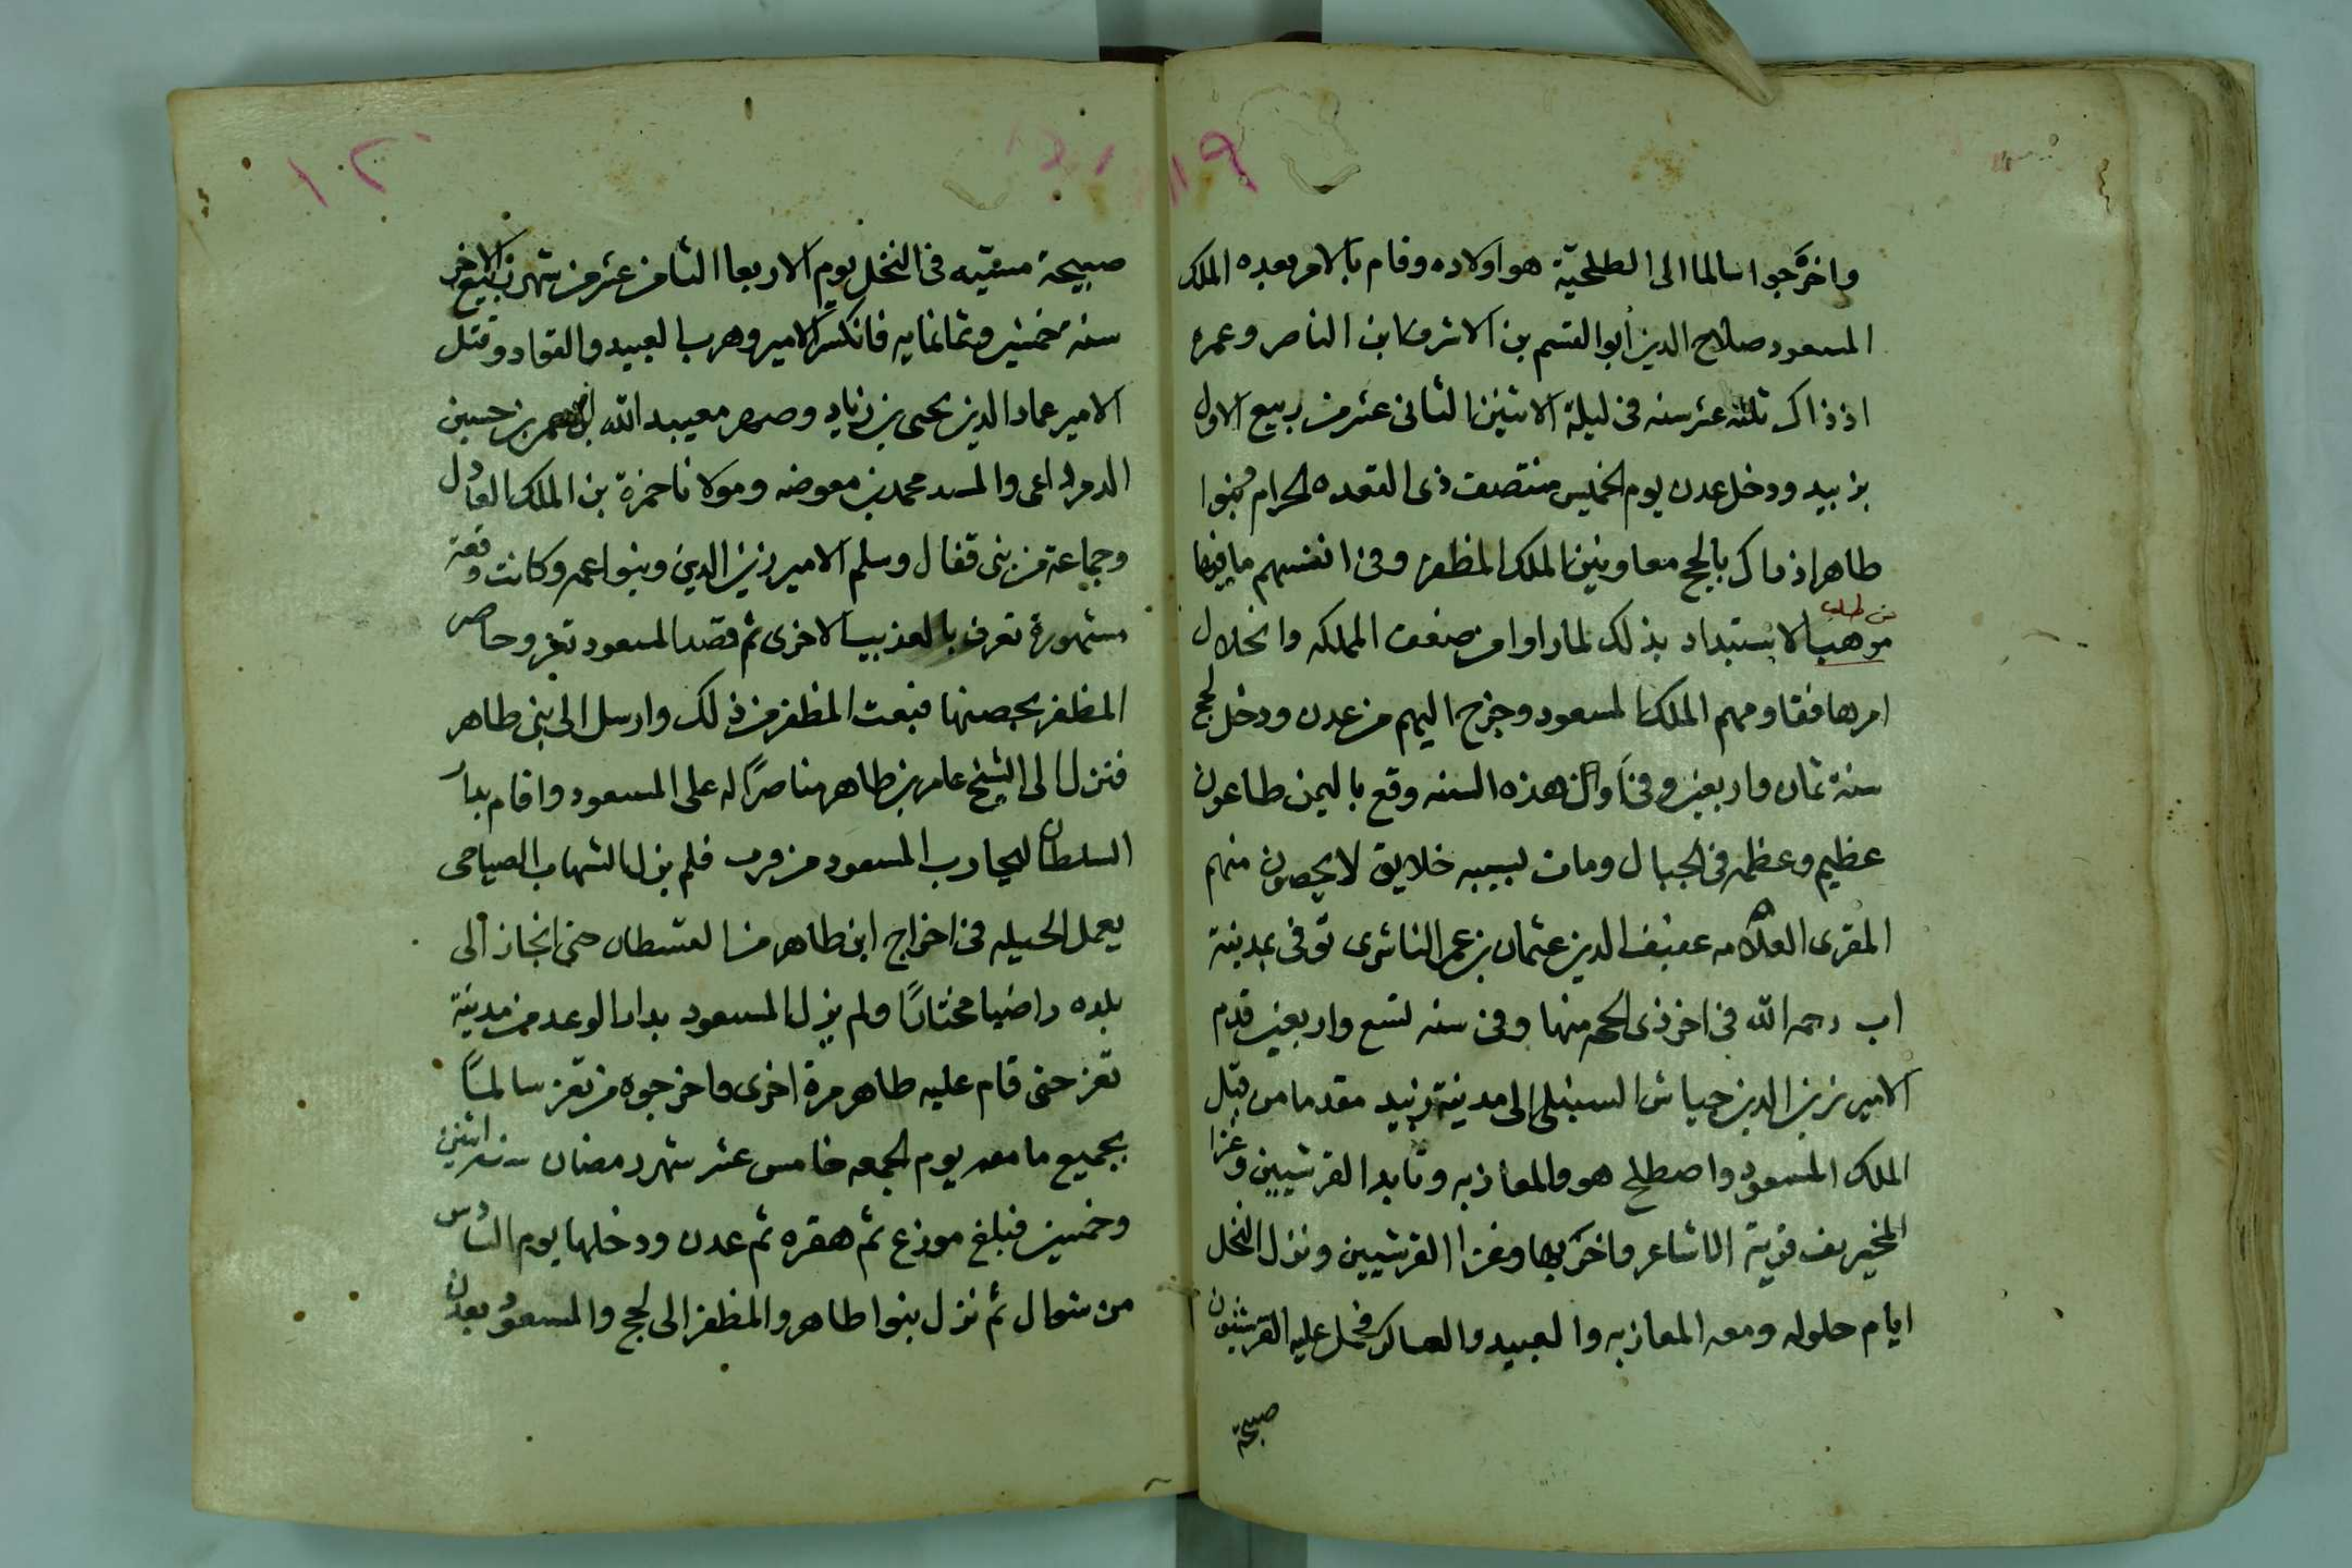 واخرجوا سالما الى الطلحيّة هو واولاده وقام بالامر بعده الملك
المسعود صلاح الدين ابو القسم بن الاشرف ابن الناصر وعمره
اذ ذاك ثلثه عشر سنه فى ليلة الاثنين الثانى عشر من ربيع الاول
بزبيد ودخل عدن يوم الخميس منتصف ذى القعده الحرام وبنوا
طاهر اذ ذاك بالحج معاونين الملك المظفر وفى انفسهم مافيها
من طلب
موهب الاستبداد بذلك لما راوا من ضعف المملكه وانحلال
امرها فقاومهم الملك المسعود وخرج اليهم من عدن ودخل لحج
سنة ثمان واربعين وفى اوائل هذه السنه وقع باليمن طاعون
عظيم وعظمه فى الجبال ومات بسببه خلايق لا يحصون منهم
المقرى العلامه عفيف الدين عثمان بن عمر الناشرى توفى بمدينة
اب رحمه الله فى اخر ذى الحجه منها وفى سنه تسع واربعين قدم
الامير زين الدين جياش السنبلى الى مدينة زبيد مقدما من قبل
الملك المسعود واصطلح هو والمعازبه ونابدا القرشيين وغزا
المخيريف قرية الاشاعر واخربها وغزا القرشيين ونزل النخل
ايام حلوله ومعه المعازبه والعبيد والعساكر فحمل عليه القرشيون
صبيحة
صبيحة مبيّته فى النخل يوم الاربعا الثامن عشر من شهر ربيع الاخر
سنه خمسين وثمانمايه فانكسر الامير وهرب العبيد والقواد وقتل
الامير عماد الدين يحيى بن زياد وصهره معيبد الله بن عمر بن حسين
والسيد محمد بن معوضه ومولانا حمزة بن الملك العادل
وجماعة من بنى قفال وسلم الامير زين الدين وبنوا عمه وكانت وقعة
مشهورة تعرف بالعذيب الاخرى ثم قصد المسعود تعز وحاصر
المظفر بحصنها فتعب المظفر من ذلك وارسل الى بنى طاهر
فنزل الى الشيخ عامر بن طاهر مناصرًا له على المسعود واقام بدار
السلطان ليحارب المسعود من قرب فلم يزل الشهاب الصباحى
يعمل الحيله فى اخراج ابن طاهر من القسطال حتى انحاز الى
بلده راضيا مختارًا ولم يزل المسعود بدار الوعد من مدينة
تعز حتى قام عليه طاهر مرة اخرى واخرجوه من تعز سالمًا
بجميع ما معه يوم الجمعه خامس عشر شهر رمضان سنه اثنين
وخمسين فبلغ موزع ثم هقره ثم عدن ودخلها يوم السادس
من شوال ثم نزل بنوا طاهر والمظفر الى لحج والمسعود بعدن